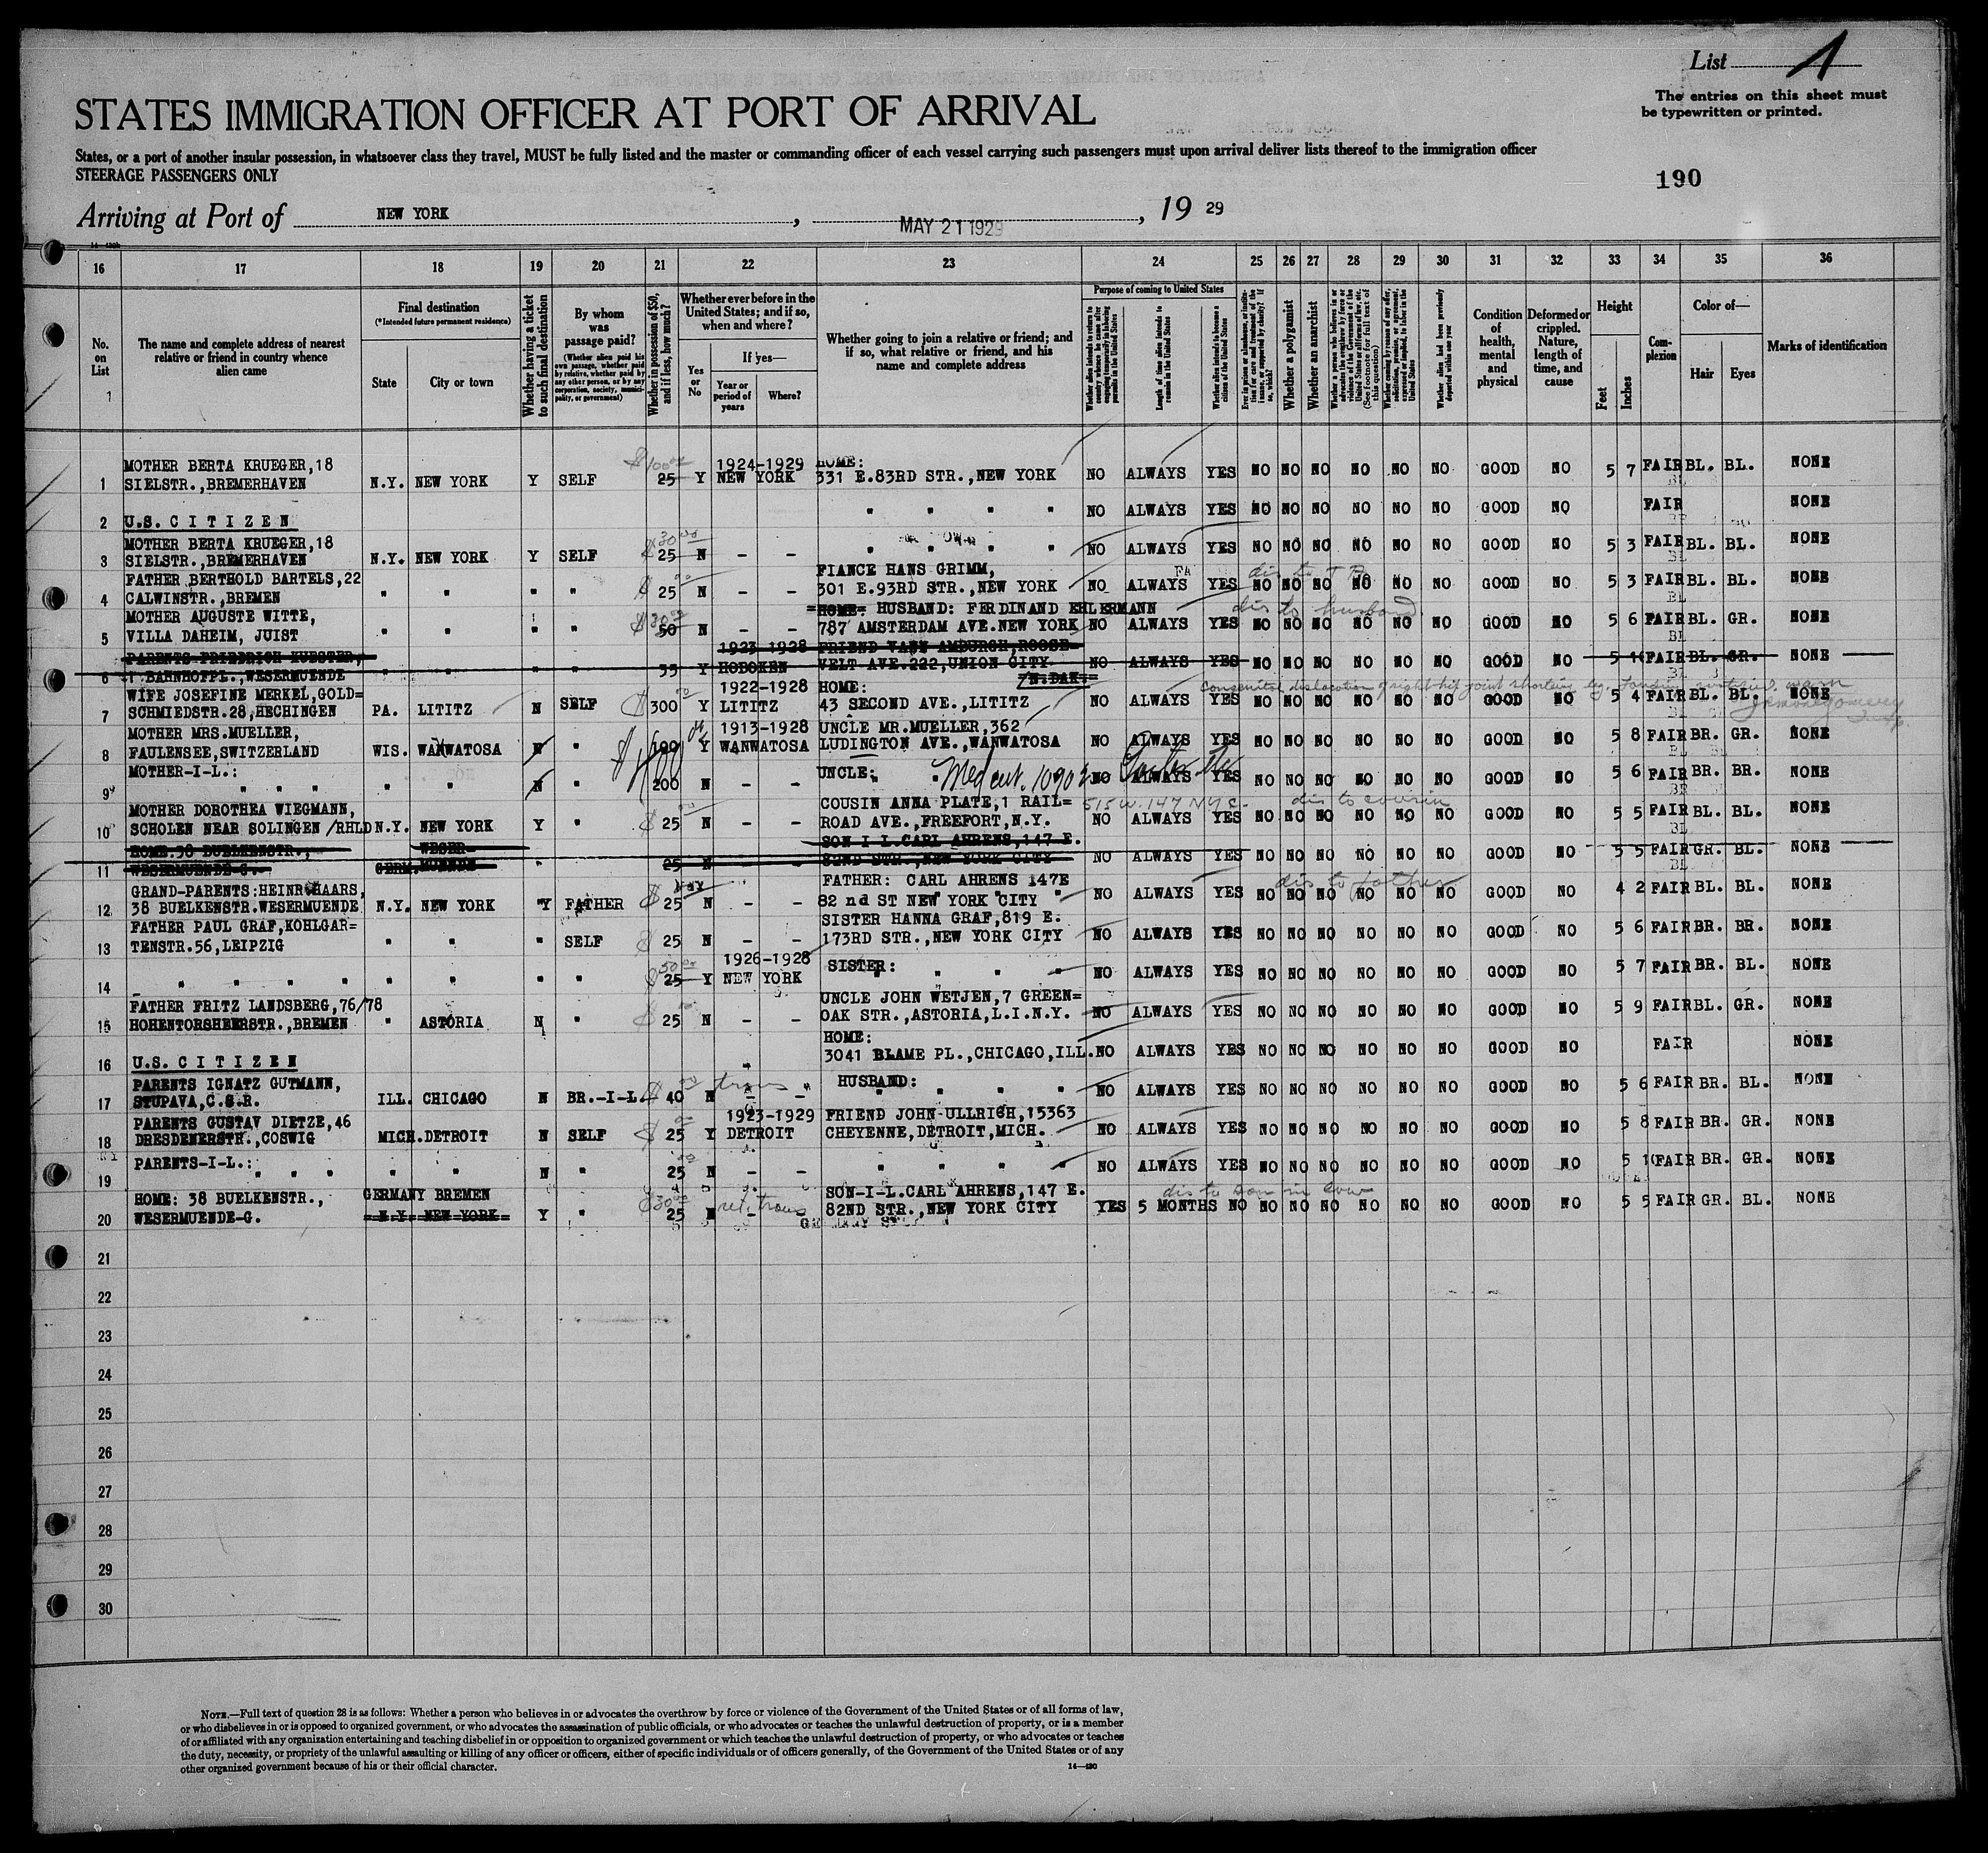 List 1
The entries on this sheet must
be typewritten or printed.
STATES IMMIGRATION OFFICER AT PORT OF ARRIVAL
States, or a port of another insular possession, in whatsoever class they travel, MUST be fully listed and the master or commanding officer of each vessel carrying such passengers must upon arrival deliver lists thereof to the immigration officer
STEERAGE PASSENGERS ONLY
190
Arriving at Port of NEW YORK, MAY 21 1929, 19 29
16 17 18 19 20 21 22 23 24 25 26 27 28 29 30 31 32 33 34 35 36
No. on List
The name and complete address of nearest relative or friend in country whence alien came
Final destination
(*Intended future permanent residence)
State
City or town
Whether having a ticket to such final destination
By whom was passage paid?
(Whether alien paid his own passage, whether paid by relative, whether paid by any other person, or by any corporation, society, municipality, or government)
Whether in possession of $50, and if less, how much?
Whether ever before in the United States; and if so, when and where?
Yes or No
If yes—
Year or period of years
Where?
Whether going to join a relative or friend; and if so, what relative or friend, and his name and complete address
Purpose of coming to United States
Length of time alien intends to remain in the United States
Whether alien intends to become a citizen of the United States
Whether a polygamist
Whether an anarchist
(See footnote for full text of this question)
Condition of health, mental and physical
Deformed or crippled. Nature, length of time, and cause
Height
Feet
Inches
Complexion
Color of—
Hair
Eyes
Marks of identification
MOTHER BERTA KRUEGER,18 1924-1929 HOME:
1 SIELSTR.,BREMERHAVEN N.Y. NEW YORK Y SELF 25 Y NEW YORK 331 E.83RD STR.,NEW YORK NO ALWAYS YES NO NO NO NO NO NO GOOD NO 5 7 FAIR BL. BL. NONE
2 U.S. C I T I Z E N " " " " NO ALWAYS YES NO NO NO NO NO NO GOOD NO FAIR NONE
MOTHER BERTA KRUEGER,18
3 SIELSTR.,BREMERHAVEN N.Y. NEW YORK Y SELF 25 N - - " " " " NO ALWAYS YES NO NO NO NO NO NO GOOD NO 5 3 FAIR BL. BL. NONE
FATHER BERTHOLD BARTELS,22 FIANCE HANS GRIMM,
4 CALWINSTR.,BREMEN " " " " 25 N - - 301 E.93RD STR.,NEW YORK NO ALWAYS YES NO NO NO NO NO NO GOOD NO 5 3 FAIR BL. BL. NONE
MOTHER AUGUSTE WITTE, HOME: HUSBAND: FERDINAND EHLERMANN dis to husband
5 VILLA DAHEIM, JUIST " " " " 50 N - - 787 AMSTERDAM AVE.NEW YORK NO ALWAYS YES NO NO NO NO NO NO GOOD NO 5 6 FAIR BL. GR. NONE
PARENTS FRIEDRICH KUESTER, 1923-1928 FRIEND VANN AMBURGH,ROOSE-
6 1 BAHNHOFPL.,WESERMUENDE " " " " 35 Y HOBOKEN VELT AVE.222,UNION CITY NO ALWAYS YES NO NO NO NO NO NO GOOD NO 5 1 FAIR BL. GR. NONE
/N.DAK.=
WIFE JOSEFINE MERKEL,GOLD= 1922-1928 HOME: congenital dislocation of right hip joint
7 SCHMIEDSTR.28,HECHINGEN PA. LITITZ N SELF $300 Y LITITZ 43 SECOND AVE.,LITITZ NO ALWAYS YES NO NO NO NO NO NO GOOD NO 5 4 FAIR BL. BL. NONE
MOTHER MRS.MUELLER, 1913-1928 UNCLE MR.MUELLER,362
8 FAULENSEE,SWITZERLAND WIS. WANWATOSA N " Y WANWATOSA LUDINGTON AVE.,WANWATOSA NO ALWAYS YES NO NO NO NO NO NO GOOD NO 5 8 FAIR BR. GR. NONE
MOTHER-I-L.: UNCLE: Med cert.
9 " " " " " " N " 200 N - - NO ALWAYS YES NO NO NO NO NO NO GOOD NO 5 6 FAIR BR. BR. NONE
MOTHER DOROTHEA WIEGMANN, COUSIN ANNA PLATE,1 RAIL= 515 W. 147 NYC. dis to cousin
10 SCHOLEN NEAR SOLINGEN/RHLD N.Y. NEW YORK Y " $25 N - - ROAD AVE.,FREEFORT,N.Y. NO ALWAYS YES NO NO NO NO NO NO GOOD NO 5 5 FAIR BL. BL. NONE
HOME.38 BUELKENSTR., WESER- SON I L.CARL AHRENS,147 E.
11 WESERMUENDE-G. GERM.MUENDE " 25 N - - 82ND STR.,NEW YORK CITY NO ALWAYS YES NO NO NO NO NO NO GOOD NO 5 5 FAIR GR. BL. NONE
GRAND-PARENTS:HEINR HAARS, FATHER: CARL AHRENS 147E dis to father
12 38 BUELKENSTR.WESERMUENDE N.Y. NEW YORK "Y FATHER $25 N - - 82 nd ST NEW YORK CITY NO ALWAYS YES NO NO NO NO NO NO GOOD NO 4 2 FAIR BL. BL. NONE
FATHER PAUL GRAF,KOHLGAR= SISTER HANNA GRAF,819 E.
13 TENSTR.56,LEIPZIG " " " SELF $25 N - - 173RD STR.,NEW YORK CITY NO ALWAYS YES NO NO NO NO NO NO GOOD NO 5 6 FAIR BR. BR. NONE
1926-1928 SISTER:
14 " " " " " " " " 25 Y NEW YORK " " " NO ALWAYS YES NO NO NO NO NO NO GOOD NO 5 7 FAIR BR. BL. NONE
FATHER FRITZ LANDSBERG,76/78 UNCLE JOHN WETJEN,7 GREEN=
15 HOHENTORSHEERSTR.,BREMEN " ASTORIA N " $25 N - - OAK STR.,ASTORIA,L.I.N.Y. NO ALWAYS YES NO NO NO NO NO NO GOOD NO 5 9 FAIR BL. GR. NONE
HOME:
16 U.S. C I T I Z E N 3041 BLAME PL.,CHICAGO,ILL. NO ALWAYS YES NO NO NO NO NO NO GOOD NO FAIR NONE
PARENTS IGNATZ GUTMANN, trans HUSBAND:
17 STUPAVA,C.S.R. ILL. CHICAGO N BR.-I-L. $40 N - - " " " NO ALWAYS YES NO NO NO NO NO NO GOOD NO 5 6 FAIR BR. BL. NONE
PARENTS GUSTAV DIETZE,46 1923-1929 FRIEND JOHN ULLRICH,15363
18 DRESDENERSTR.,COSWIG MICH.DETROIT N SELF $25 Y DETROIT CHEYENNE,DETROIT,MICH. NO ALWAYS YES NO NO NO NO NO NO GOOD NO 5 8 FAIR BR. GR. NONE
PARENTS-I-L.:
19 " " " " " N " 25 N - - " " " " NO ALWAYS YES NO NO NO NO NO NO GOOD NO 5 1 FAIR BR. GR. NONE
HOME: 38 BUELKENSTR., GERMANY BREMEN SON-I-L.CARL AHRENS,147 E. dis to son in law
20 WESERMUENDE-G. N.Y. NEW YORK Y " 25 N - 82ND STR.,NEW YORK CITY YES 5 MONTHS NO NO NO NO NO NO NO GOOD NO 5 5 FAIR GR. BL. NONE
21
22
23
24
25
26
27
28
29
30
NOTE.—Full text of question 28 is as follows: Whether a person who believes in or advocates the overthrow by force or violence of the Government of the United States or of all forms of law,
or who disbelieves in or is opposed to organized government, or who advocates the assassination of public officials, or who advocates or teaches the unlawful destruction of property, or is a member
of or affiliated with any organization entertaining and teaching disbelief in or opposition to organized government or which teaches the unlawful destruction of property, or who advocates or teaches
the duty, necessity, or propriety of the unlawful assaulting or killing of any officer or officers, either of specific individuals or of officers generally, of the Government of the United States or of any
other organized government because of his or their official character.
14—430